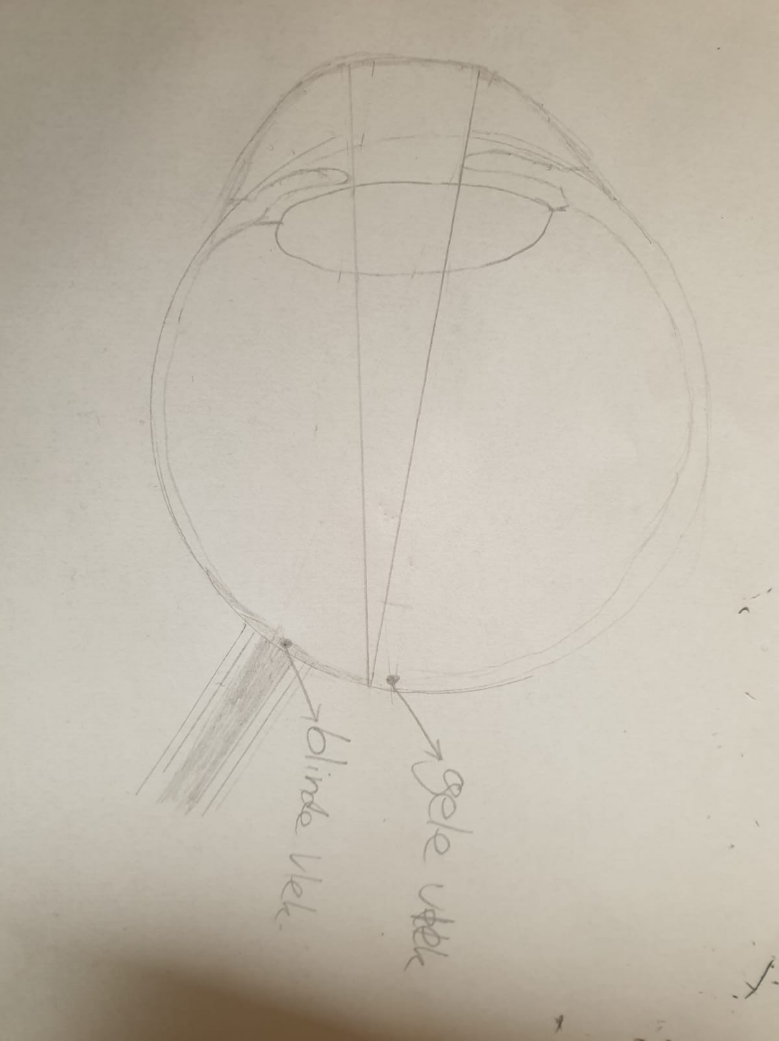 gele vlek
blinde vlek.